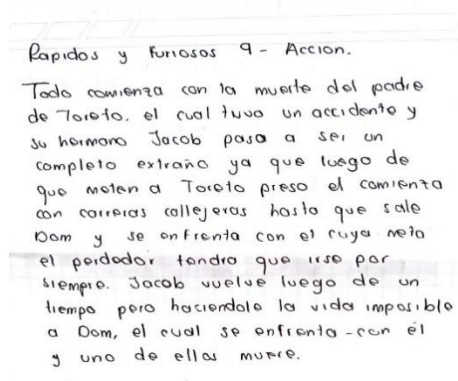 Rapidos y Furiosos 9 - Accion.
Todo comienza con la muerte del padre
de Toreto. el cual tuvo un accidente y
su hermano Jacob pasa a ser un
completo extraño ya que luego de
que meten a Toreto preso el comienza
con carreras callejeras hasta que sale
Dom y se enfrenta con el cuya meta
el perdedor tendra que irse por
siempre. Jacob vuelve luego de un
tiempo pero haciendole la vida imposible
a Dom, el cual se enfrenta - con él
y uno de ellos muere.